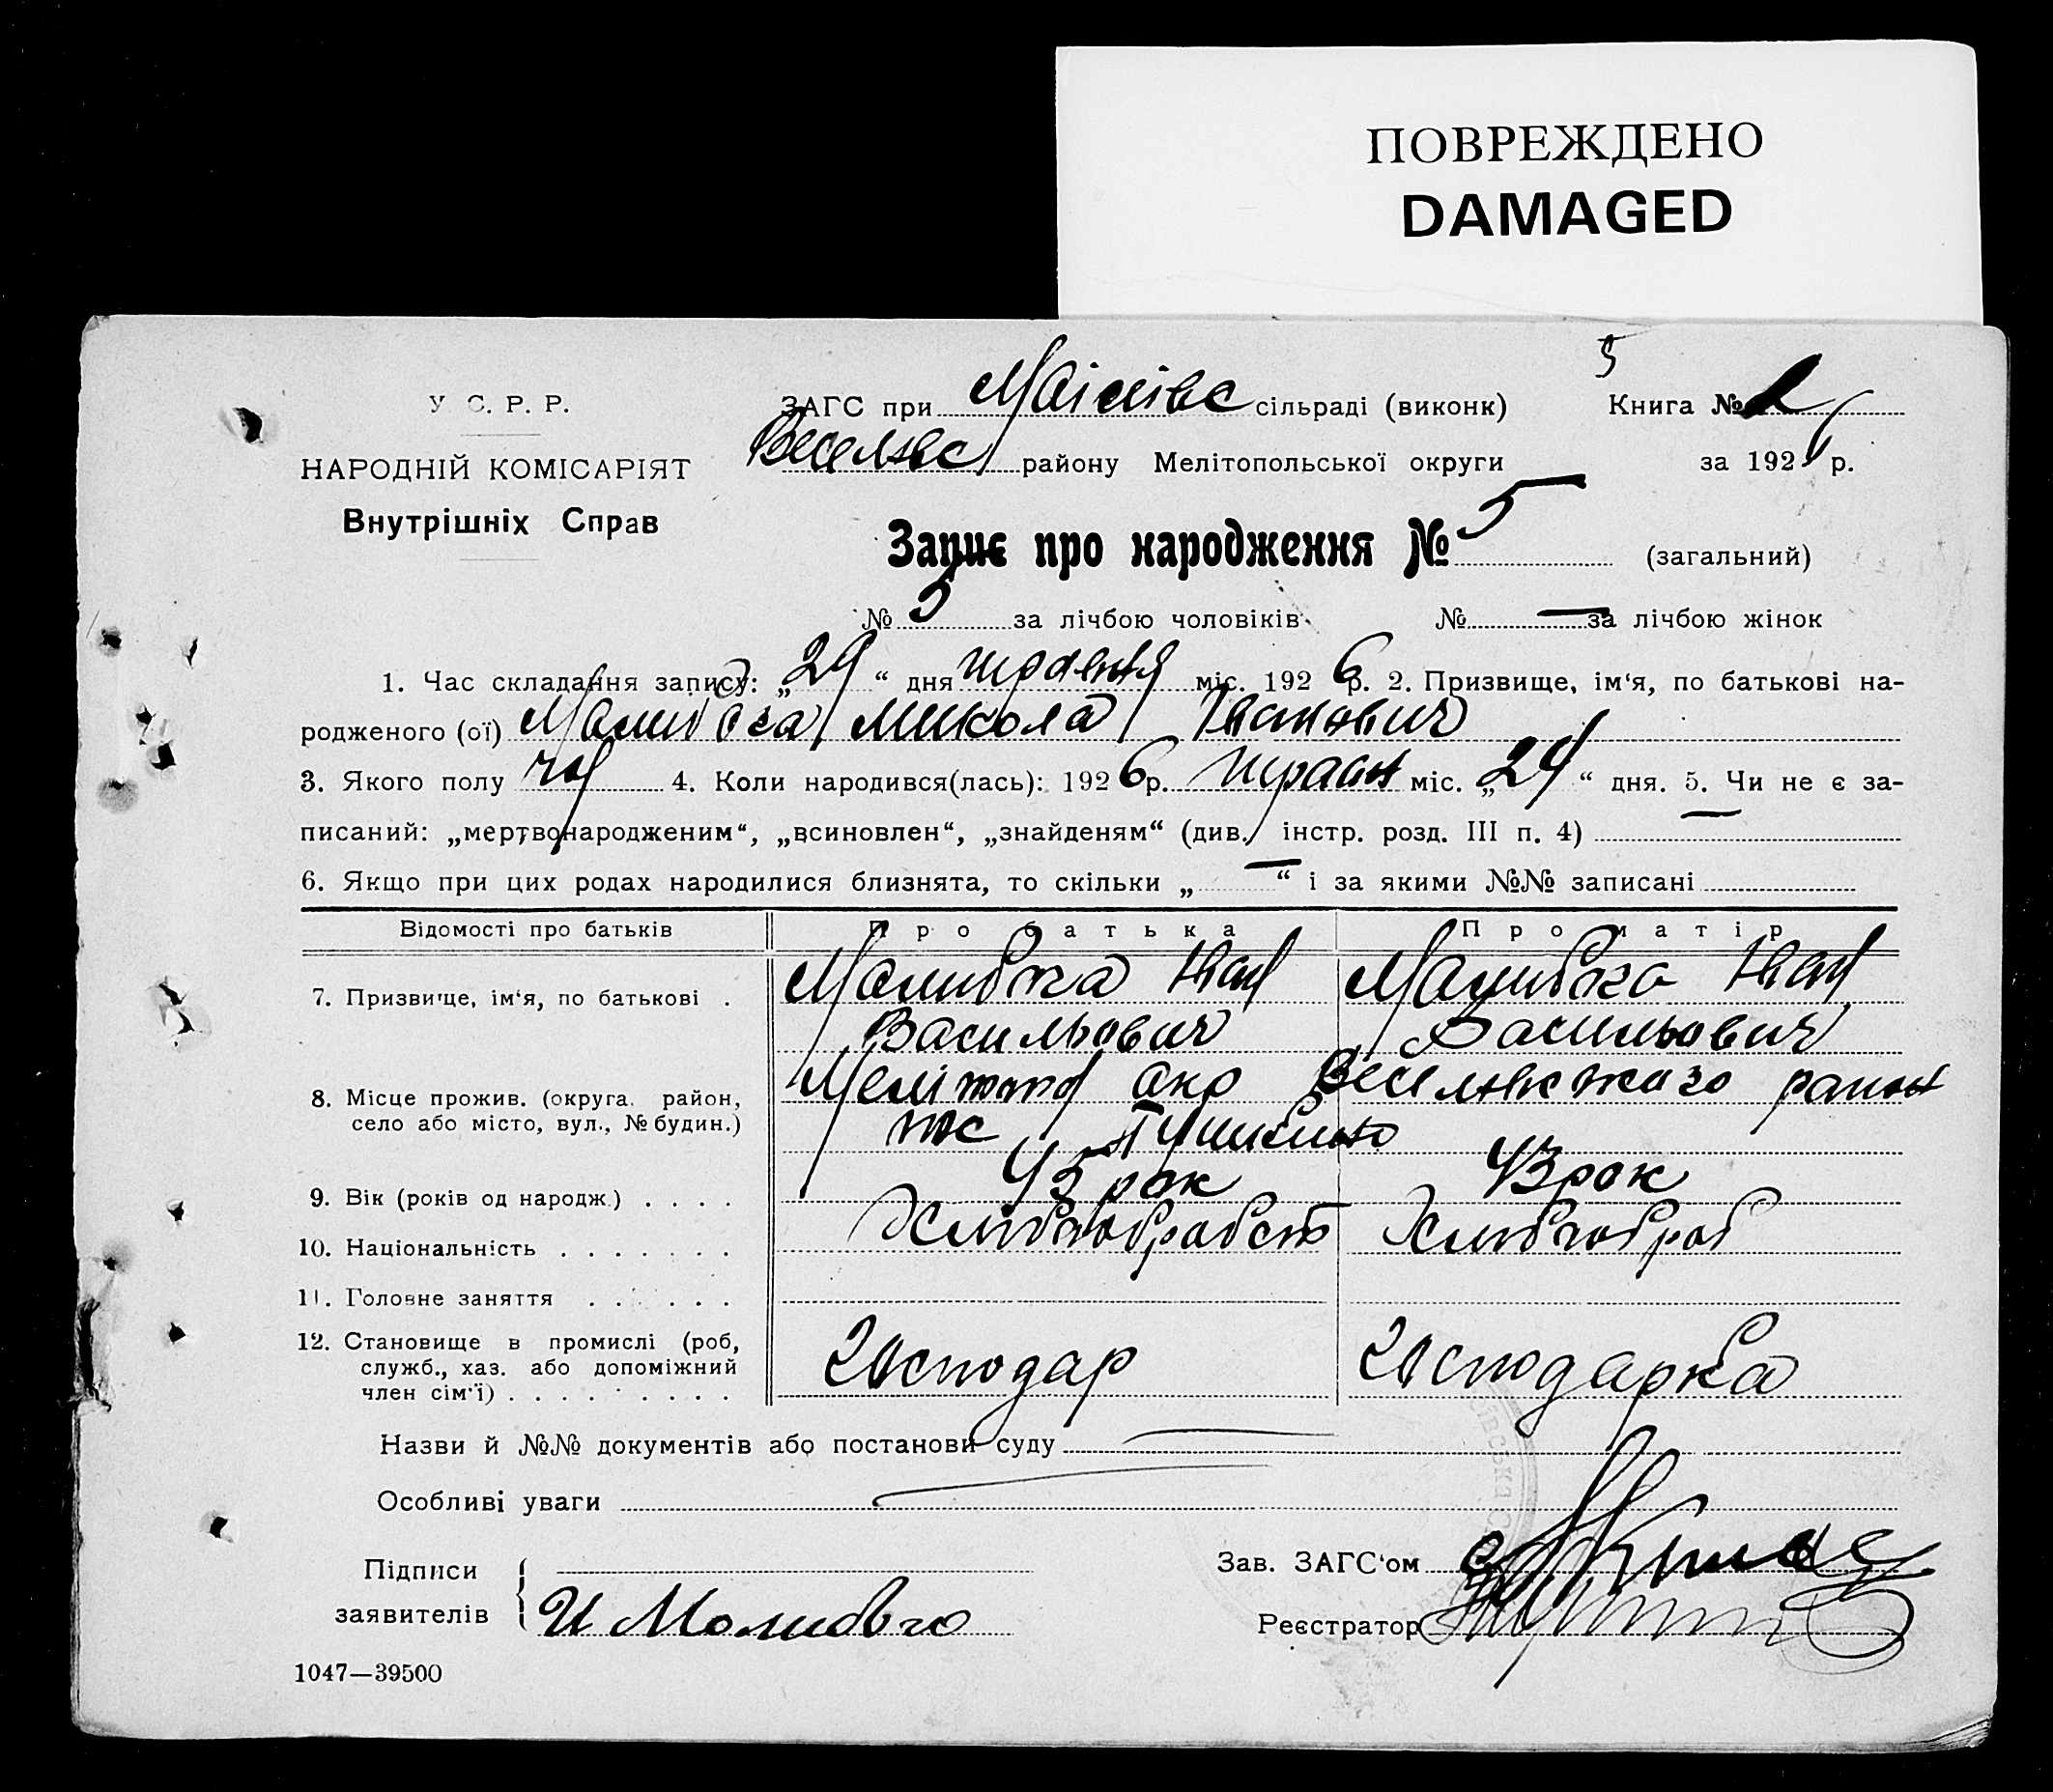 ПОВРЕЖДЕНО
DAMAGED
5
У. С. Р. Р.
ЗАГС при сільраді (виконк) Книга №
НАРОДНІЙ КОМІСАРІЯТ
Веселівс району Мелітопольської округи за 192 р.
Внутрішніх Справ
Запис про народження № 5 (загальний)
№ 5 за лічбою чоловіків № — за лічбою жінок
1. Час складання запису: „29“ дня травня міс. 1926 р. 2. Призвище, ім‘я, по батькові на-
родженого (ої) Микола Іванович
3. Якого полу чол 4. Коли народився(лась): 1926 р. травн міс. „24“ дня. 5. Чи не є за-
писаний: „мертвонародженим“, „всиновлен“, „знайденям“ (див. інстр. розд. III п. 4) —
6. Якщо при цих родах народилися близнята, то скільки „—“ і за якими №№ записані
Відомості про батьків Про батька Про матір
7. Призвище, ім‘я, по батькові . Иван Иван
Васильович Васильович
8. Місце прожив. (округа, район, Мелітоп окр район
село або місто, вул., № будин.)
9. Вік (років од народж.) . . . . 45 рок 43 рок
10. Національність . . . . . . . Хлиборобств Хлибороб
11. Головне заняття . . . . . .
12. Становище в промислі (роб, Господар Господарка
служб., хаз. або допоміжний
член сім‘ї) . . . . . . . . .
Назви й №№ документів або постанови суду
Особливі уваги
Підписи
заявителів
Зав. ЗАГС‘ом
Реєстратор
1047—39500